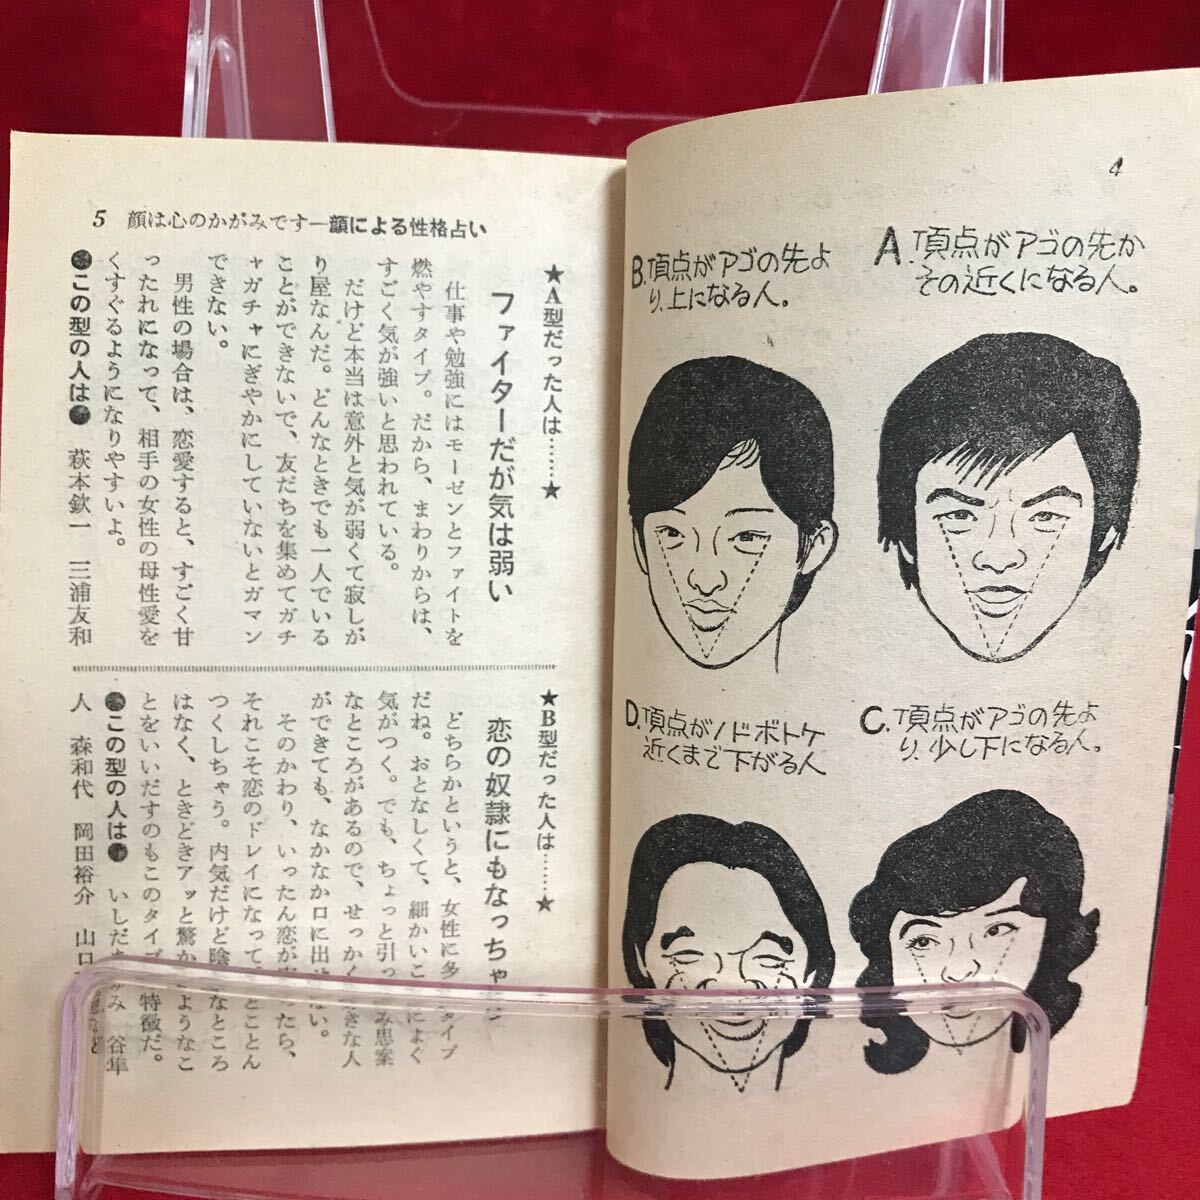 4
A.頂点がアゴの先か
その近くになる人。
B.頂点がアゴの先よ
り、上になる人。
C.頂点がアゴの先よ
り、少し下になる人。
D.頂点がノドボトケ
近くまで下がる人
5 顔は心のかがみです―顔による性格占い
★A型だった人は……★
ファイターだが気は弱い
仕事や勉強にはモーゼンとファイトを
燃やすタイプ。だから、まわりからは、
すごく気が強いと思われている。
だけど本当は意外と気が弱くて寂しが
り屋なんだ。どんなときでも一人でいる
ことができないで、友だちを集めてガチ
ャガチャにぎやかにしていないとガマン
できない。
男性の場合は、恋愛すると、すごく甘
ったれになって、相手の女性の母性愛を
くすぐるようになりやすいよ。
●この型の人は● 萩本欽一 三浦友和
★B型だった人は……★
恋の奴隷にもなっちゃ
どちらかというと、女性に多 タイプ
だね。おとなしくて、細かいこ によく
気がつく。でも、ちょっと引っ み思案
なところがあるので、せっかく きな人
ができても、なかなか口に出せ い。
そのかわり、いったん恋が ったら、
それこそ恋のドレイになって とことん
つくしちゃう。内気だけど陰 なところ
はなく、ときどきアッと驚か ようなこ
とをいいだすのもこのタイプ 特徴だ。
●この型の人は● いしだあ み 谷隼
人 森和代 岡田裕介 山口